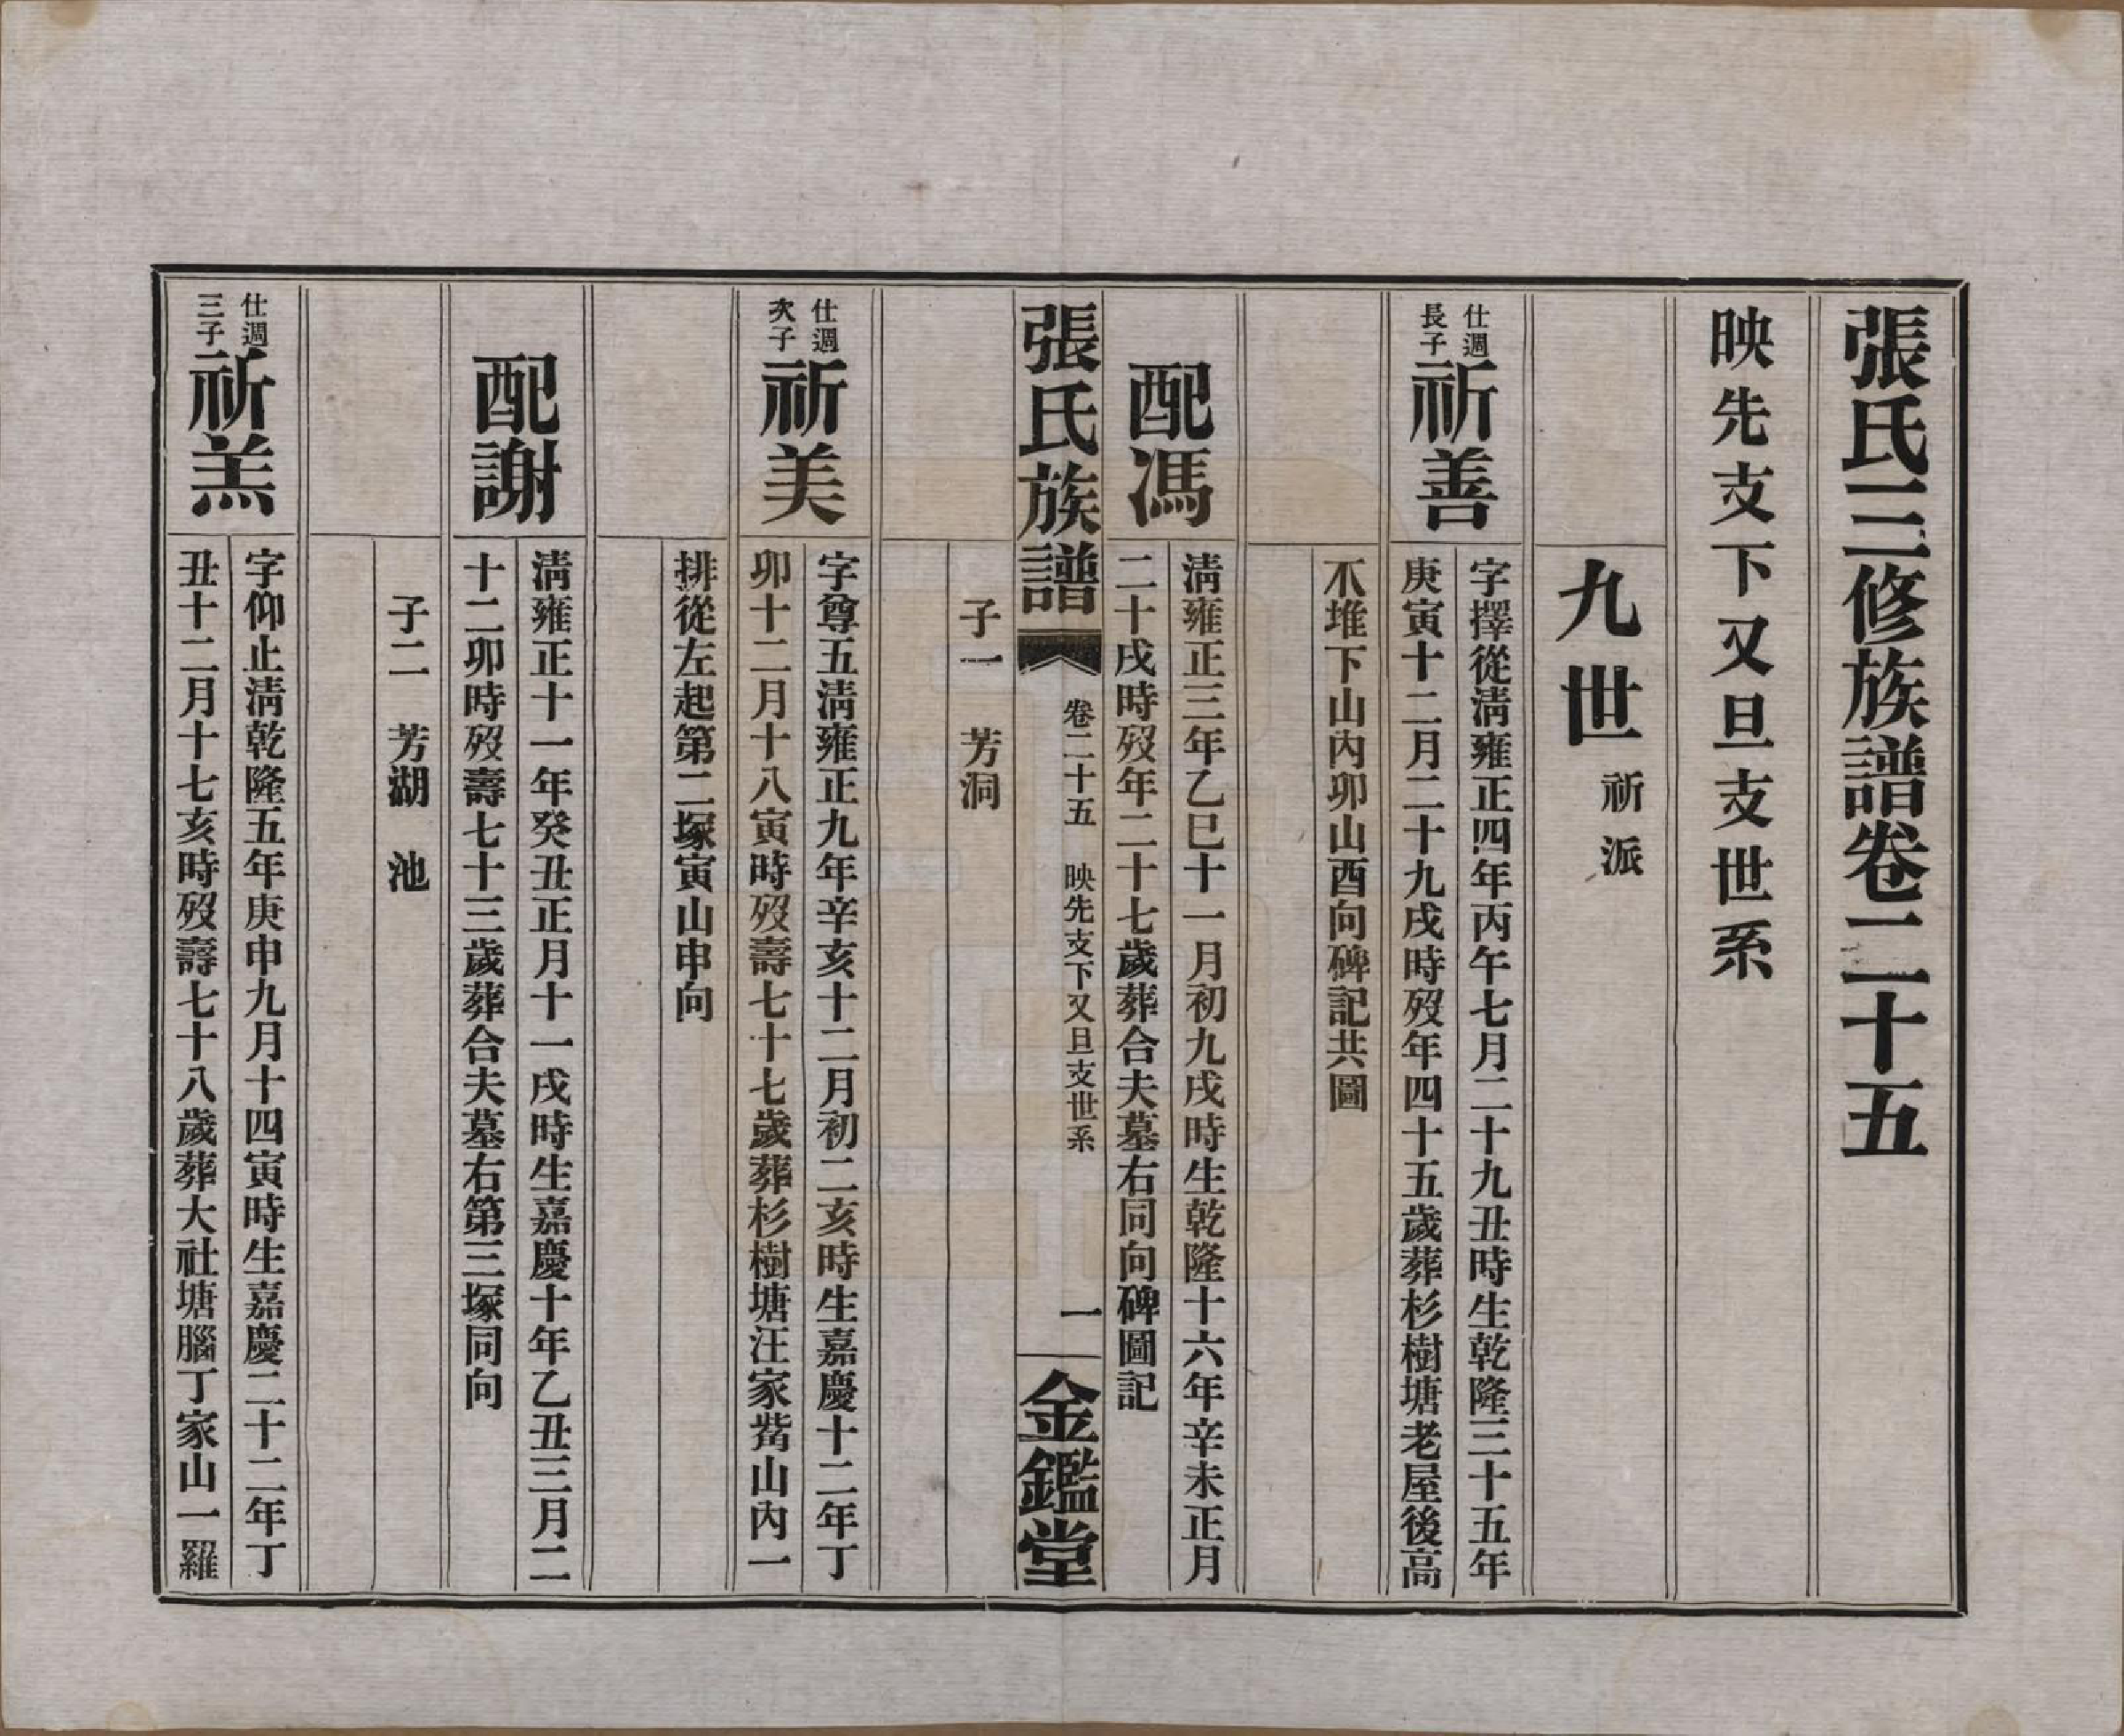 張氏三修族譜卷二十五
映先支下又旦支世系
九世 祈派
仕週長子 祈善
字擇從淸雍正四年丙午七月二十九丑時生乾隆三十五年
庚寅十二月二十九戌時歿年四十五歲葬杉樹塘老屋後高
不堆下山內卯山酉向碑記共圖
配馮
淸雍正三年乙巳十一月初九戌時生乾隆十六年辛未正月
二十戌時歿年二十七歲葬合夫墓右同向碑圖記
張氏族譜 卷二十五 映先支下又旦支世系 一 金鑑堂
子一 芳洞
仕週次子 祈美
字尊五淸雍正九年辛亥十二月初二亥時生嘉慶十二年丁
卯十二月十八寅時歿壽七十七歲葬杉樹塘汪家嘴山內一
排從左起第二塚寅山申向
配謝
淸雍正十一年癸丑正月十一戌時生嘉慶十年乙丑三月二
十二卯時歿壽七十三歲葬合夫墓右第三塚同向
子二 芳湖 池
仕週三子 祈羔
字仰止淸乾隆五年庚申九月十四寅時生嘉慶二十二年丁
丑十二月十七亥時歿壽七十八歲葬大社塘腦丁家山一羅